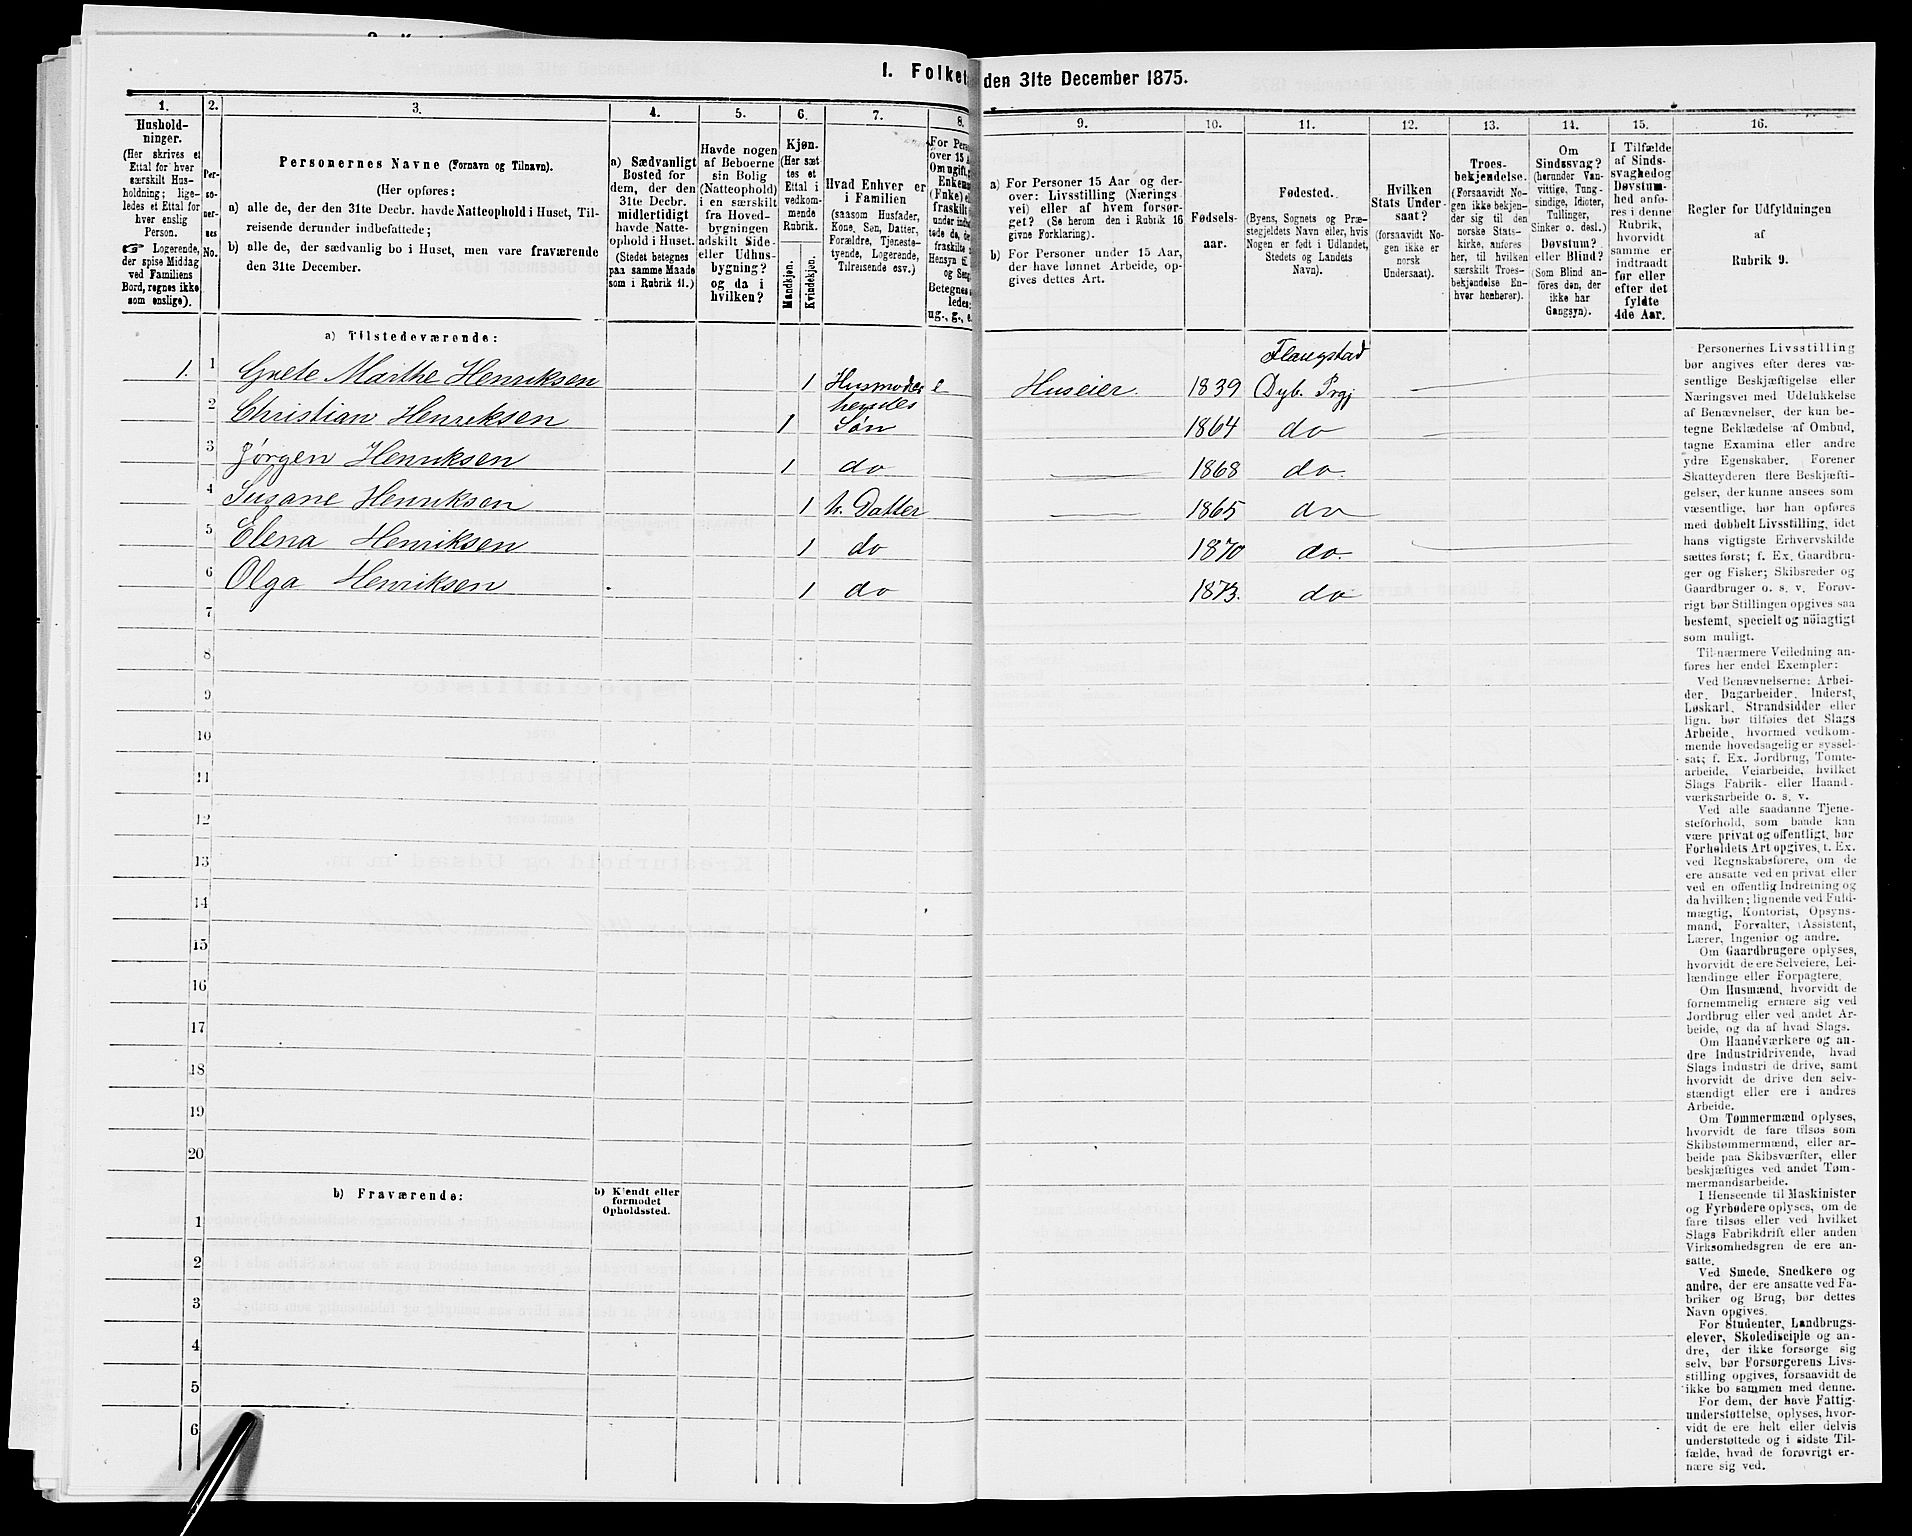 I. Folket den 31te December 1875.
1.
Hushold-
ninger.
(Her skrives et
Ettal for hver
særskilt Hus-
holdning; lige-
ledes et Ettal for
hver enslig
Person.
☞ Logerende,
der spise Middag
ved Familiens
Bord, regnes ikke
som enslige).
2.
Per-
so-
ner-
nes
No.
3.
Personernes Navne (Fornavn og Tilnavn).
(Her opføres:
a) alle de, der den 31te Decbr. havde Natteophold i Huset, Til-
reisende derunder indbefattede;
b) alle de, der sædvanlig bo i Huset, men vare fraværende
den 31te December.
4.
a) Sædvanligt
Bosted for
dem, der den
31te Decbr.
midlertidigt
havde Natte-
ophold i Huset.
(Stedet betegnes
paa samme Maade
som i Rubrik 11.)
5.
Havde nogen
af Beboerne
sin Bolig
(Natteophold)
i en særskilt
fra Hoved-
bygningen
adskilt Side-
eller Udhus-
bygning?
og da i
hvilken?
6.
Kjøn.
(Her sæt-
tes et
Ettal i
vedkom-
mende
Rubrik.
Mandkjøn.
Kvindekjøn.
7.
Hvad Enhver er
i Familien
(saasom Husfader,
Kone, Søn, Datter,
Forældre, Tjeneste-
tyende, Logerende,
Tilreisende osv.)
8.
For Pers
over 15 A
Om ugift,
Enkem
(Fnke)
fraskilt
under indbe
tede de, der
fraskilte
Hensyn til
og Seng
Betegnes
ledes:
ug., g., e.
9.
a) For Personer 15 Aar og der-
over: Livsstilling (Nærings-
vei) eller af hvem forsør-
get? (Se herom den i Rubrik 16
givne Forklaring).
b) For Personer under 15 Aar,
der have lønnet Arbeide, op-
gives dettes Art.
10.
Fødsels-
aar.
11.
Fødested.
(Byens, Sognets og Præ-
stegjeldets Navn eller, hvis
Nogen er født i Udlandet,
Stedets og Landets
Navn).
12.
Hvilken
Stats Under-
saat?
(forsaavidt No-
gen ikke er
norsk
Undersaat).
13.
Troes-
bekjendelse.
(Forsaavidt No-
gen ikke bekjen-
der sig til den
norske Stats-
kirke, anføres
her, til hvilken
særskilt Troes-
bekjendelse En-
hver henhører).
14.
Om
Sindssvag?
(herunder Van-
vittige, Tung-
sindige, Idioter,
Tullinger,
Sinker o. desl.)
Døvstum?
eller Blind?
(Som Blind an-
føres den, der
ikke har
Gangsyn).
15.
I Tilfælde
af Sinds-
svaghed og
Døvstum-
hed anfø-
res i denne
Rubrik,
hvorvidt
samme er
indtraadt
før eller
efter det
fyldte
4de Aar.
16.
Regler for Udfyldningen
af
Rubrik 9.
a) Tilstedeværende:
1. 1 Grete Marthe Henriksen 1 Husmoder e Huseier. 1839 Flaugstad Dyb. Prgj
2 Christian Henriksen 1 hendes Søn 1864 do
3 Jørgen Henriksen 1 do 1868 do.
4 Susane Henriksen 1 h. Datter 1865 do
5 Elena Henriksen 1 do 1870 do.
6 Olga Henriksen 1 do 1873. do
7
8
9
10
11
12
13
14
15
16
17
18
19
20
b) Fraværende:
b) Kjendt eller
formodet
Opholdssted.
1
2
3
4
5
6
Personernes Livsstilling
bør angives efter deres væ-
sentlige Beskjæftigelse eller
Næringsvei med Udelukkelse
af Benævnelser, der kun be-
tegne Beklædelse af Ombud,
tagne Examina eller andre
ydre Egenskaber. Forener
Skatteyderen flere Beskjæfti-
gelser, der kunne ansees som
væsentlige, bør han opføres
med dobbelt Livsstilling, idet
hans vigtigste Erhvervskilde
sættes først; f. Ex. Gaardbru-
ger og Fisker; Skibsreder og
Gaardbruger o. s. v. Forøv-
rigt bør Stillingen opgives saa
bestemt, specielt og nöiagtigt
som muligt.
Til nærmere Veiledning an-
føres her endel Exempler:
Ved Benævnelserne: Arbei-
der, Dagarbeider, Inderst,
Løskarl, Strandsidder eller
lign. bør tilføies det Slags
Arbeide, hvormed vedkom-
mende hovedsagelig er syssel-
sat; f. Ex. Jordbrug, Tomte-
arbeide, Veiarbeide, hvilket
Slags Fabrik- eller Haand-
værksarbeide o. s. v.
Ved alle saadanne Tjene-
steforhold, som baade kan
være privat og offentligt, bør
Forholdets Art opgives, t. Ex.
ved Regnskabsførere, om de
ere ansatte ved en privat eller
ved en offentlig Indretning og
da hvilken; lignende ved Fuld-
mægtig, Kontorist, Opsyns-
mand, Forvalter, Assistent,
Lærer, Ingeniør og andre.
Om Gaardbrugere oplyses,
hvorvidt de ere Selveiere, Lei-
lændinge eller Forpagtere.
Om Husmænd, hvorvidt de
fornemmelig ernære sig ved
Jordbrug eller ved andet Ar-
beide, og da af hvad Slags.
Om Haandværkere og an-
dre Industridrivende, hvad
Slags Industri de drive, samt
hvorvidt de drive den selv-
stændigt eller ere i andres
Arbeide.
Om Tømmermænd oplyses,
hvorvidt de fare tilsøs som
Skibstømmermænd, eller ar-
beide paa Skibsværfter, eller
beskjæftiges ved andet Tøm-
mermandsarbeide.
I Henseende til Maskinister
og Fyrbødere oplyses, om de
fare tilsøs eller ved hvilket
Slags Fabrikdrift eller anden
Virksomhedsgren de ere an-
satte.
Ved Smede, Snedkere og
andre, der ere ansatte ved Fa-
briker og Brug, bør dettes
Navn opgives.
For Studenter, Landbrugs-
elever, Skoledisciple og an-
dre, der ikke forsørge sig
selv, bør Forsørgerens Livs-
stilling opgives, forsaavidt de
ikke bo sammen med denne.
For dem, der have Fattig-
understøttelse, oplyses, hvor-
vidt de ere helt eller delvis
understøttede og i sidste Til-
fælde, hvad de forøvrigt er-
nære sig ved.